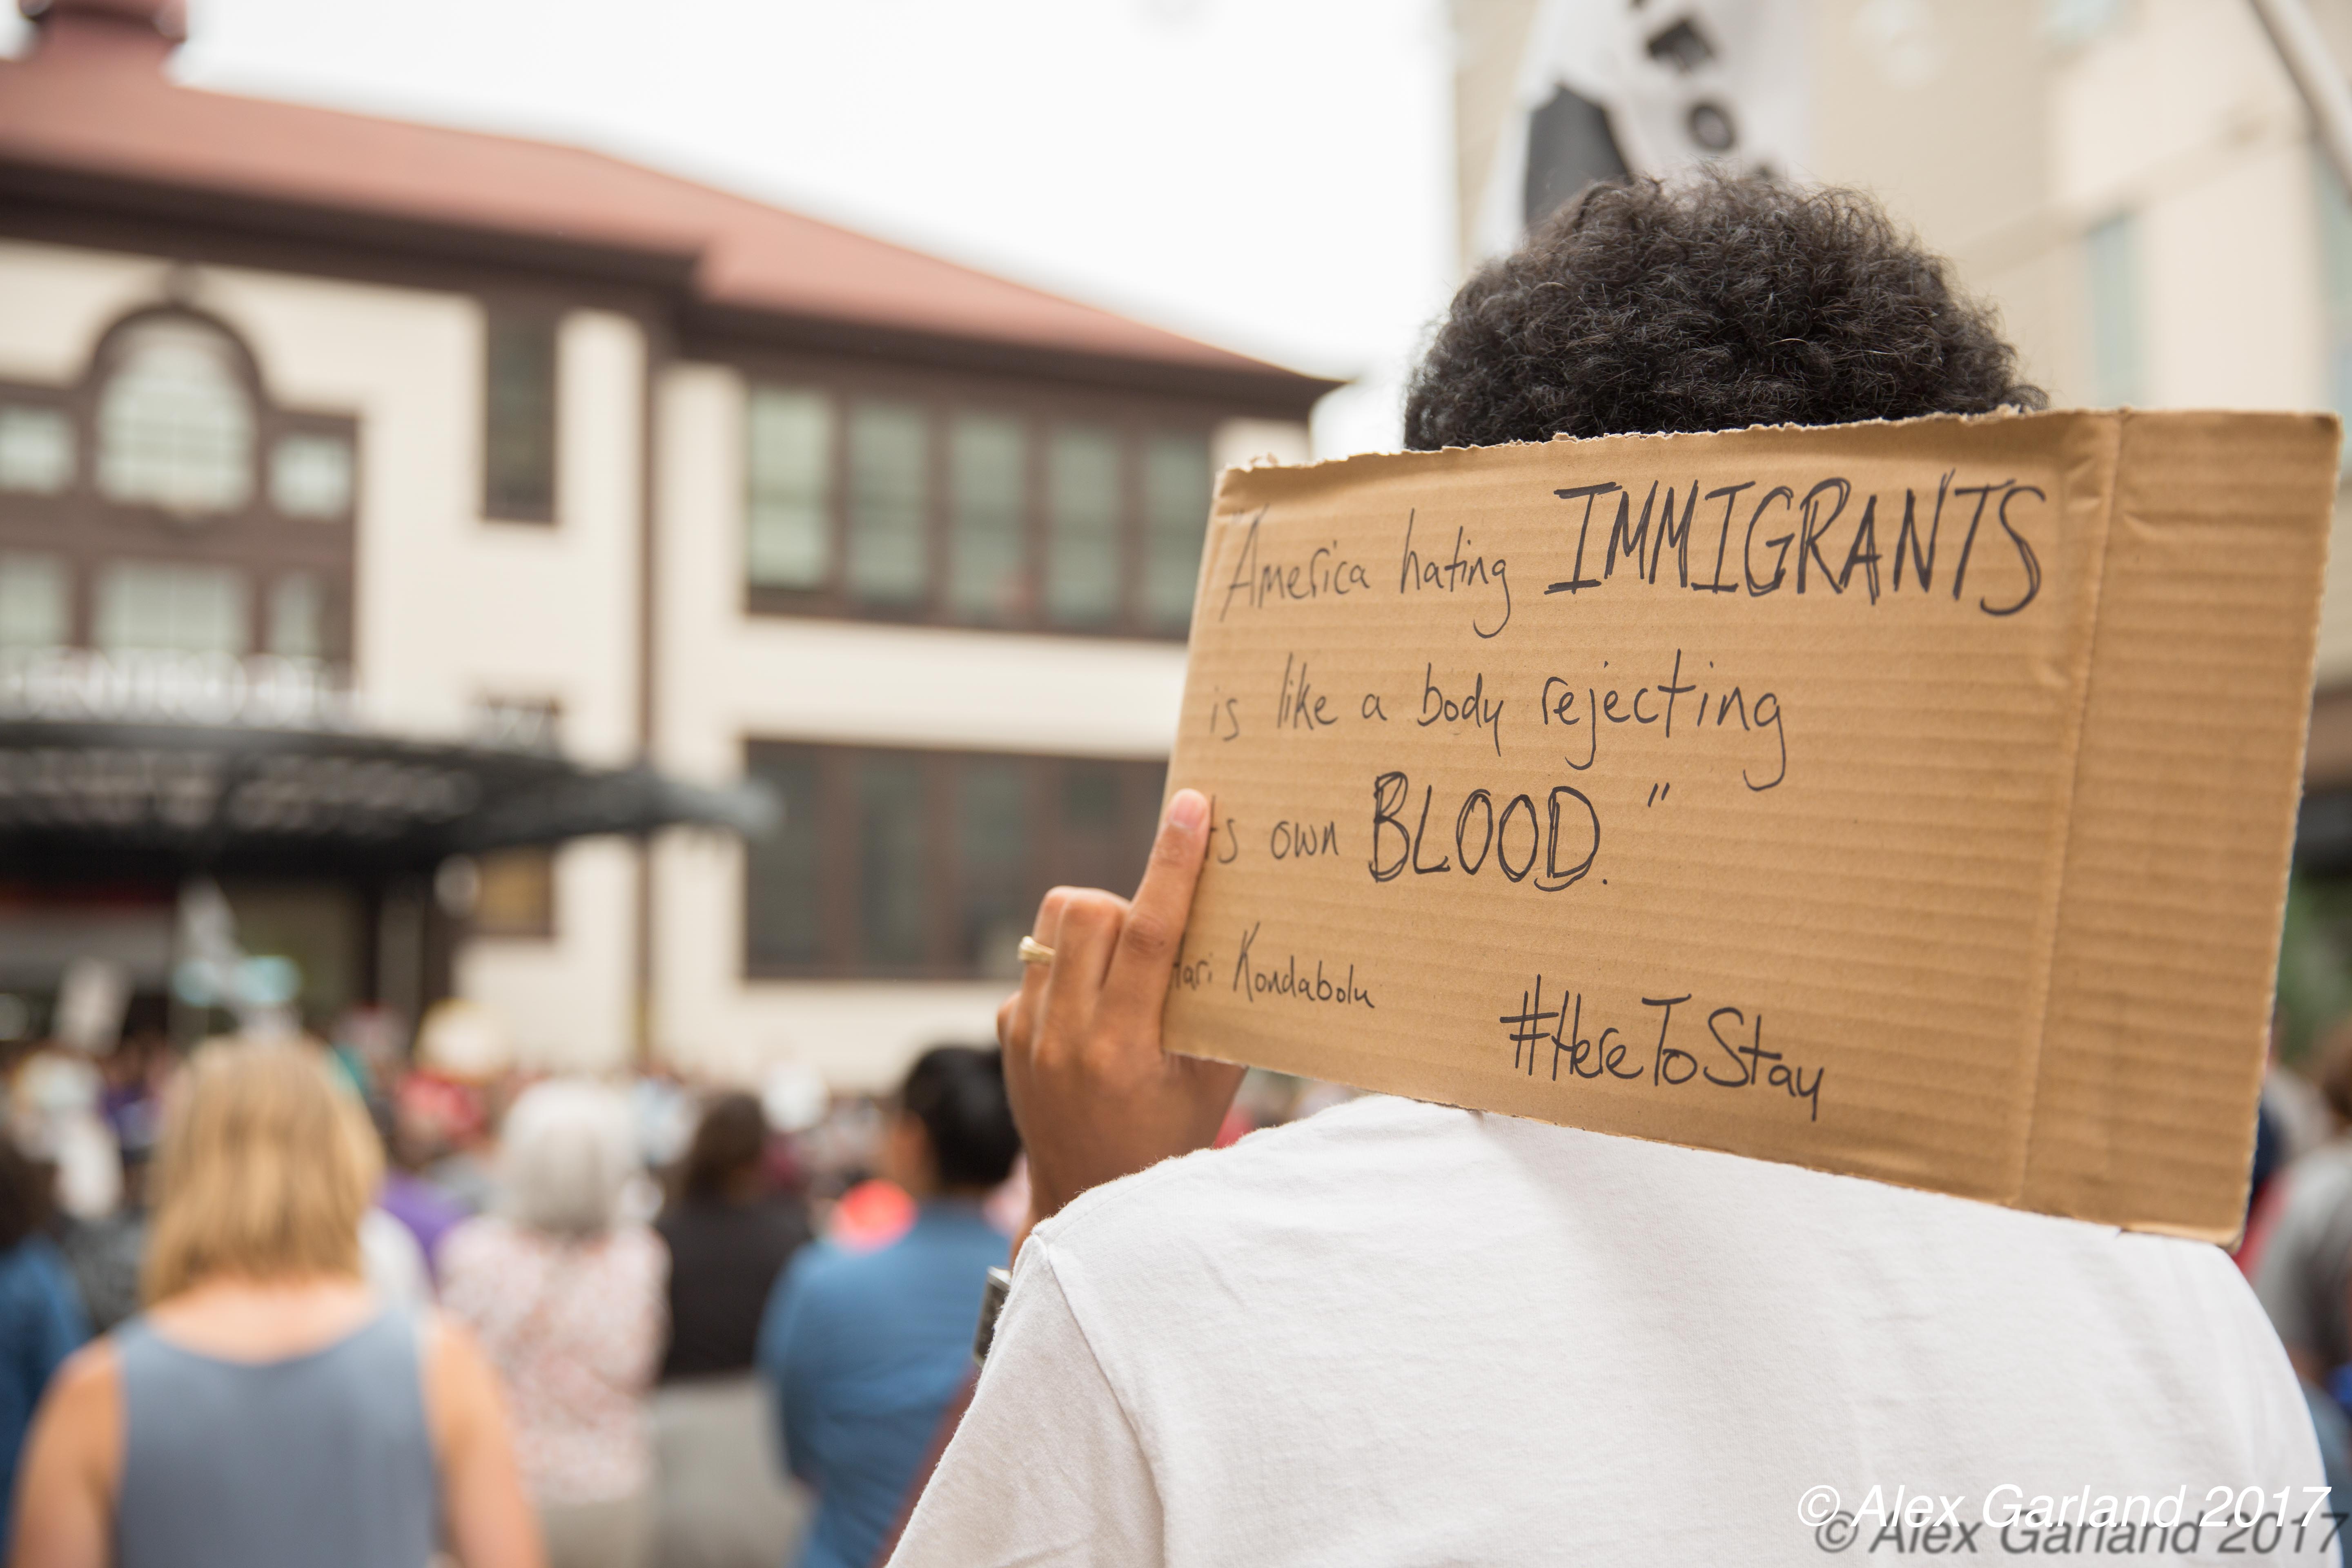 "America hating IMMIGRANTS
is like a body rejecting
own BLOOD."
Kondabolu
#HereToStay
©Alex Garland 2017
©Alex Garland 2017